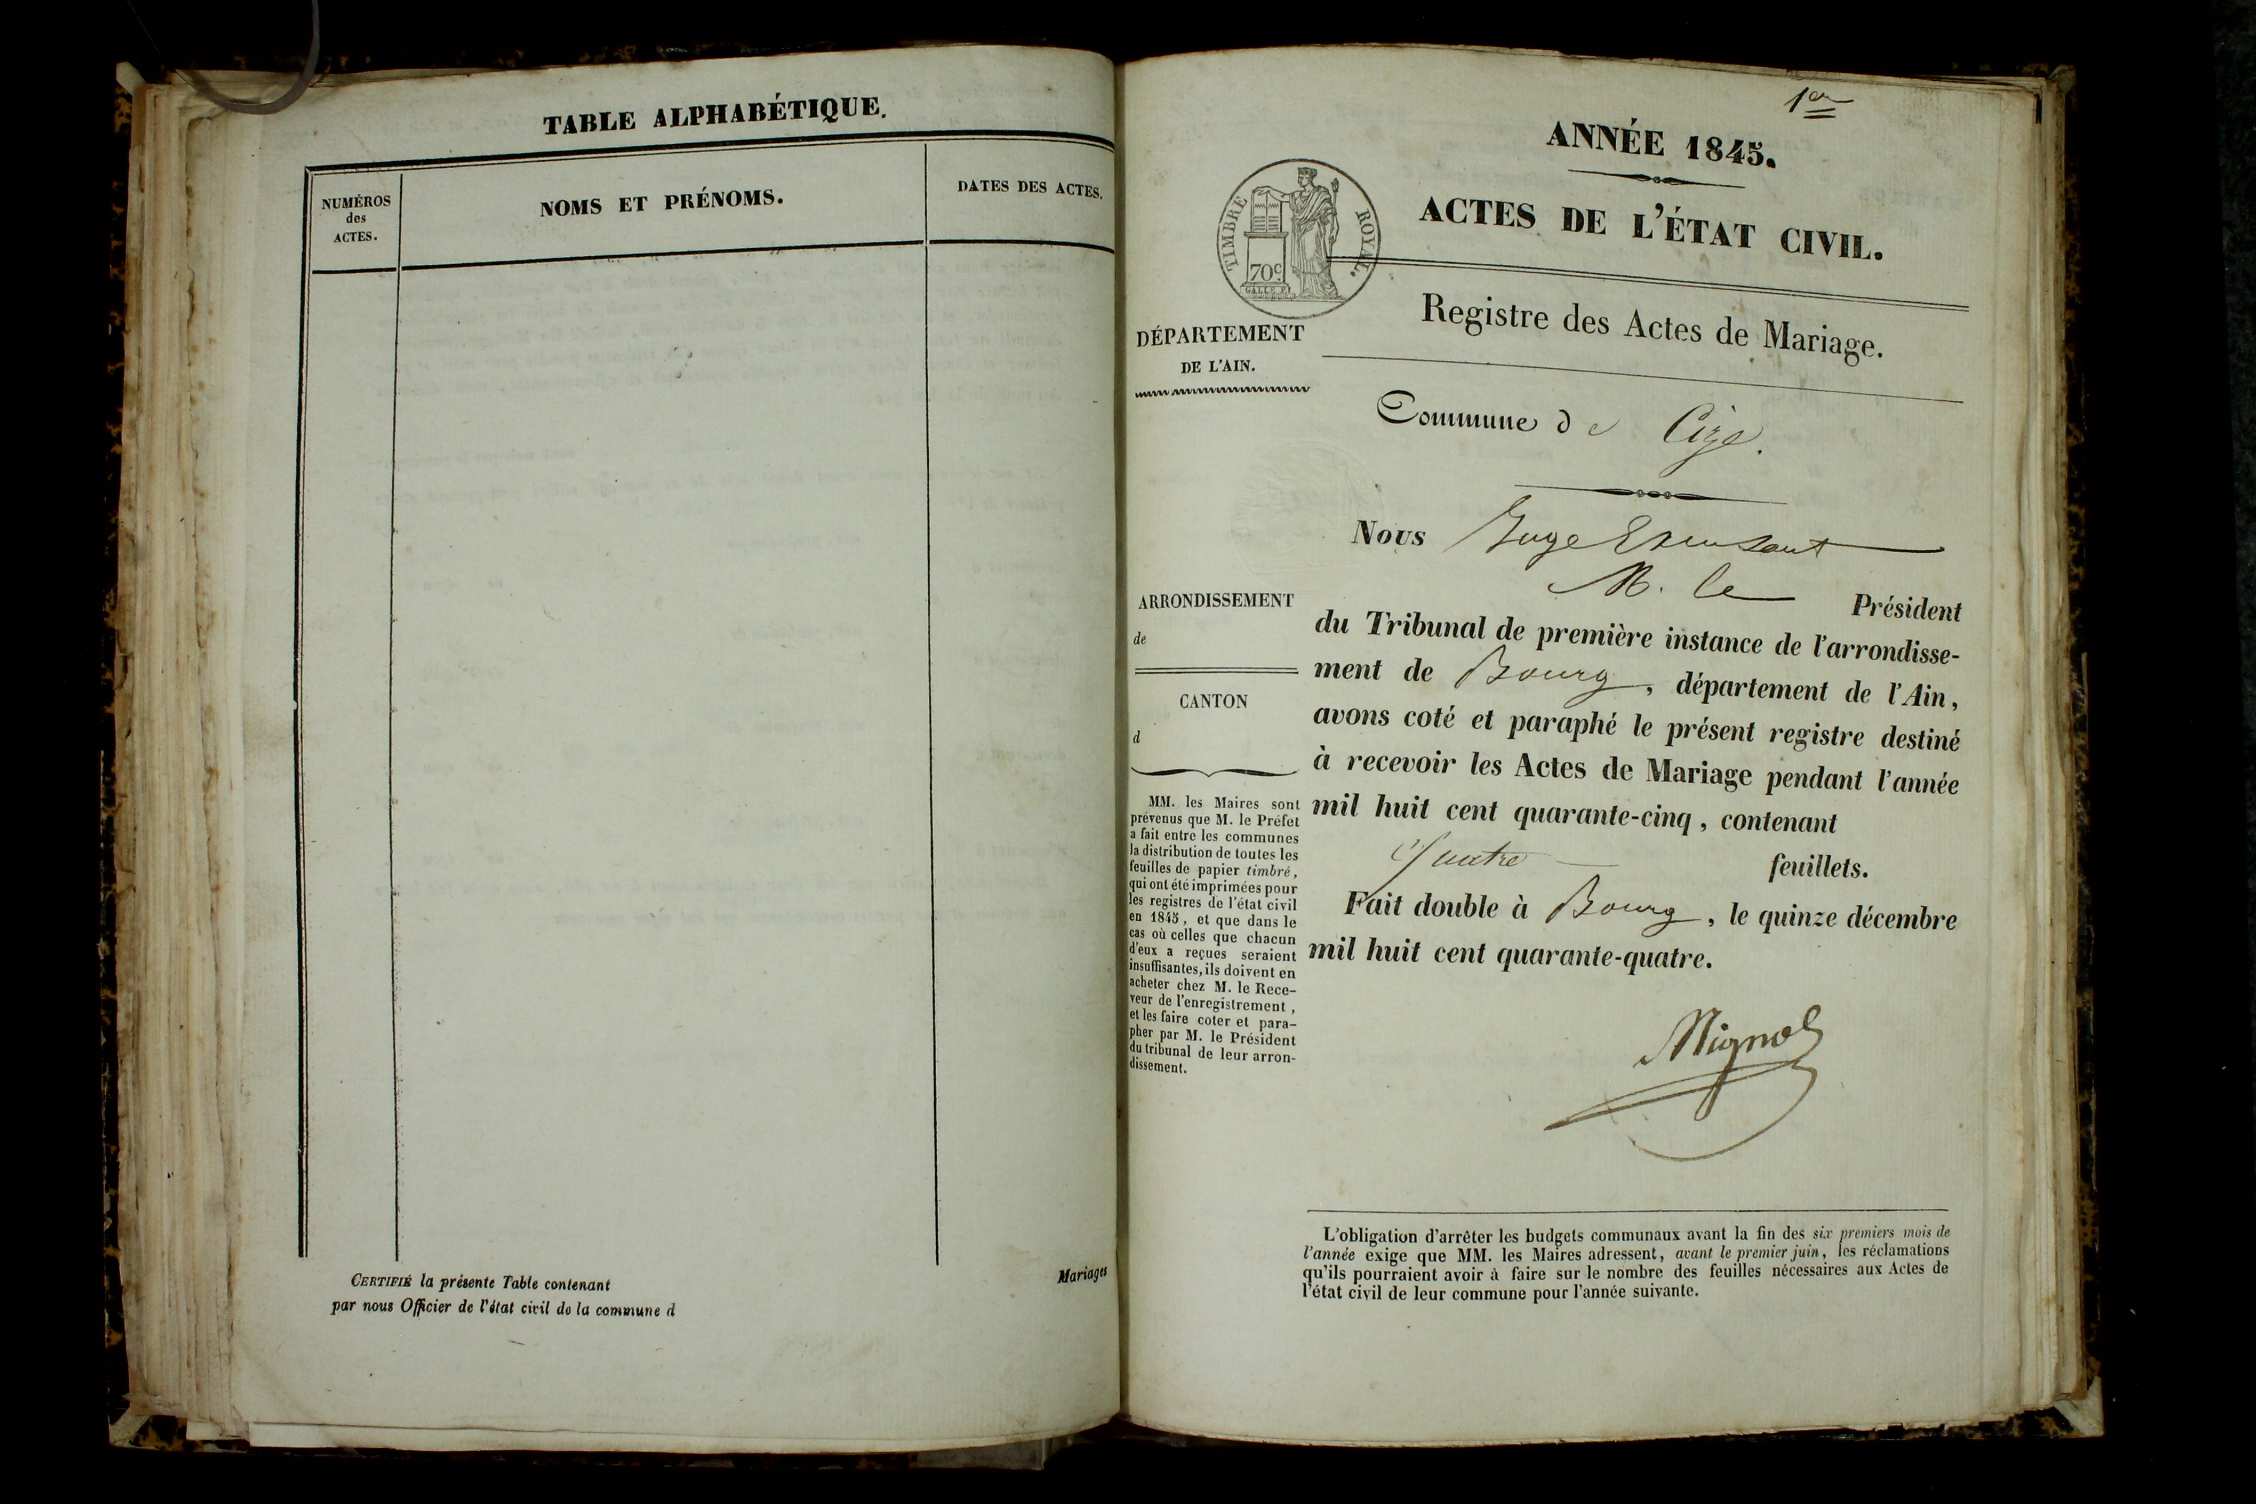 TABLE ALPHABÉTIQUE.
NUMÉROS
des
ACTES.
NOMS ET PRÉNOMS.
DATES DES ACTES.
CERTIFIÉ la présente Table contenant
par nous Officier de l'état civil de la commune d
Mariages
1er
ANNÉE 1845.
ACTES DE L'ÉTAT CIVIL.
TIMBRE ROYAL.
70c
Registre des Actes de Mariage.
DÉPARTEMENT
DE L'AIN.
Commune de Cize.
Nous Juge
M. le Président
ARRONDISSEMENT
de
CANTON
d
du Tribunal de première instance de l'arrondisse-
ment de Bourg, département de l'Ain,
avons coté et paraphé le présent registre destiné
à recevoir les Actes de Mariage pendant l'année
mil huit cent quarante-cinq, contenant
quatre feuillets.
Fait double à Bourg, le quinze décembre
mil huit cent quarante-quatre.
MM. les Maires sont
prévenus que M. le Préfet
a fait entre les communes
la distribution de toutes les
feuilles de papier timbré,
qui ont été imprimées pour
les registres de l'état civil
en 1845, et que dans le
cas où celles que chacun
d'eux a reçues seraient
insuffisantes, ils doivent en
acheter chez M. le Rece-
veur de l'enregistrement,
et les faire coter et para-
pher par M. le Président
du tribunal de leur arron-
dissement.
L'obligation d'arrêter les budgets communaux avant la fin des six premiers mois de
l'année exige que MM. les Maires adressent, avant le premier juin, les réclamations
qu'ils pourraient avoir à faire sur le nombre des feuilles nécessaires aux Actes de
l'état civil de leur commune pour l'année suivante.